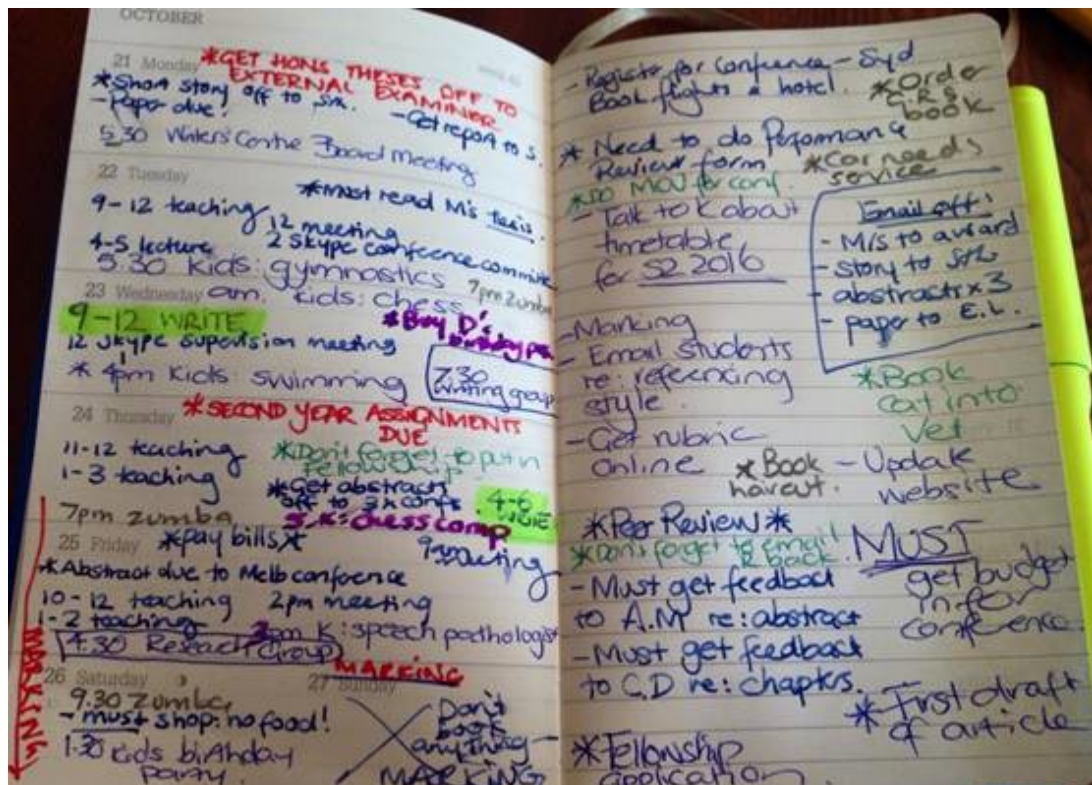 OCTOBER
21 Monday
*GET HONS THESES OFF TO
EXTERNAL EXAMINER
*Short story off to
- Paper due!
- Get report to S.
5.30 Writers Centre Board Meeting
22 Tuesday
*must read M's thesis.
9-12 teaching
12 meeting
4-5 lecture
2 Skype conference committee
5.30 kids: gymnastics
7pm Zumba
23 Wednesday
am. kids: chess
9-12 WRITE
*Buy D's
birthday
12 Skype supervision meeting
* 4pm kids: swimming
7.30
writing group
24 Thursday
*SECOND YEAR ASSIGNMENTS
DUE
11-12 teaching
*Don't forget to put in
Fellowship
1-3 teaching
*Get abstracts
off to 3 x confs
4-6
WRITE
7pm zumba
K: chess comp
25 Friday
*pay bills*
meeting
*Abstract due to Melb conference
10-12 teaching
2pm meeting
1-2 teaching
3pm K: speech pathologist
4.30 Research Group
MARKING
26 Saturday
27 Sunday
9.30 zumba
- must shop: no food!
1.30 kids birthday
party.
Don't
book
anything -
MARKING
MARKING
- Register for conference - Syd
Book flights & hotel.
*Order
book
* Need to do Performance
Review form
*Car needs
service
*DO MOU for conf.
- Talk to K about
timetable
for S2 2016
Email off:
- M/S to award
- story to
- abstracts x 3
- paper to E.L.
- Marking
- Email students
re: referencing
style.
*Book
cat into
vet
- Get rubric
online
*Book
haircut.
- Update
website
*Peer Review*
*Don't forget to email
R back.
MUST
get budget
in for
conference.
- Must get feedback
to A.M re: abstract
- Must get feedback
to C.D re: chapters.
*First draft
of article
*Fellowship
application